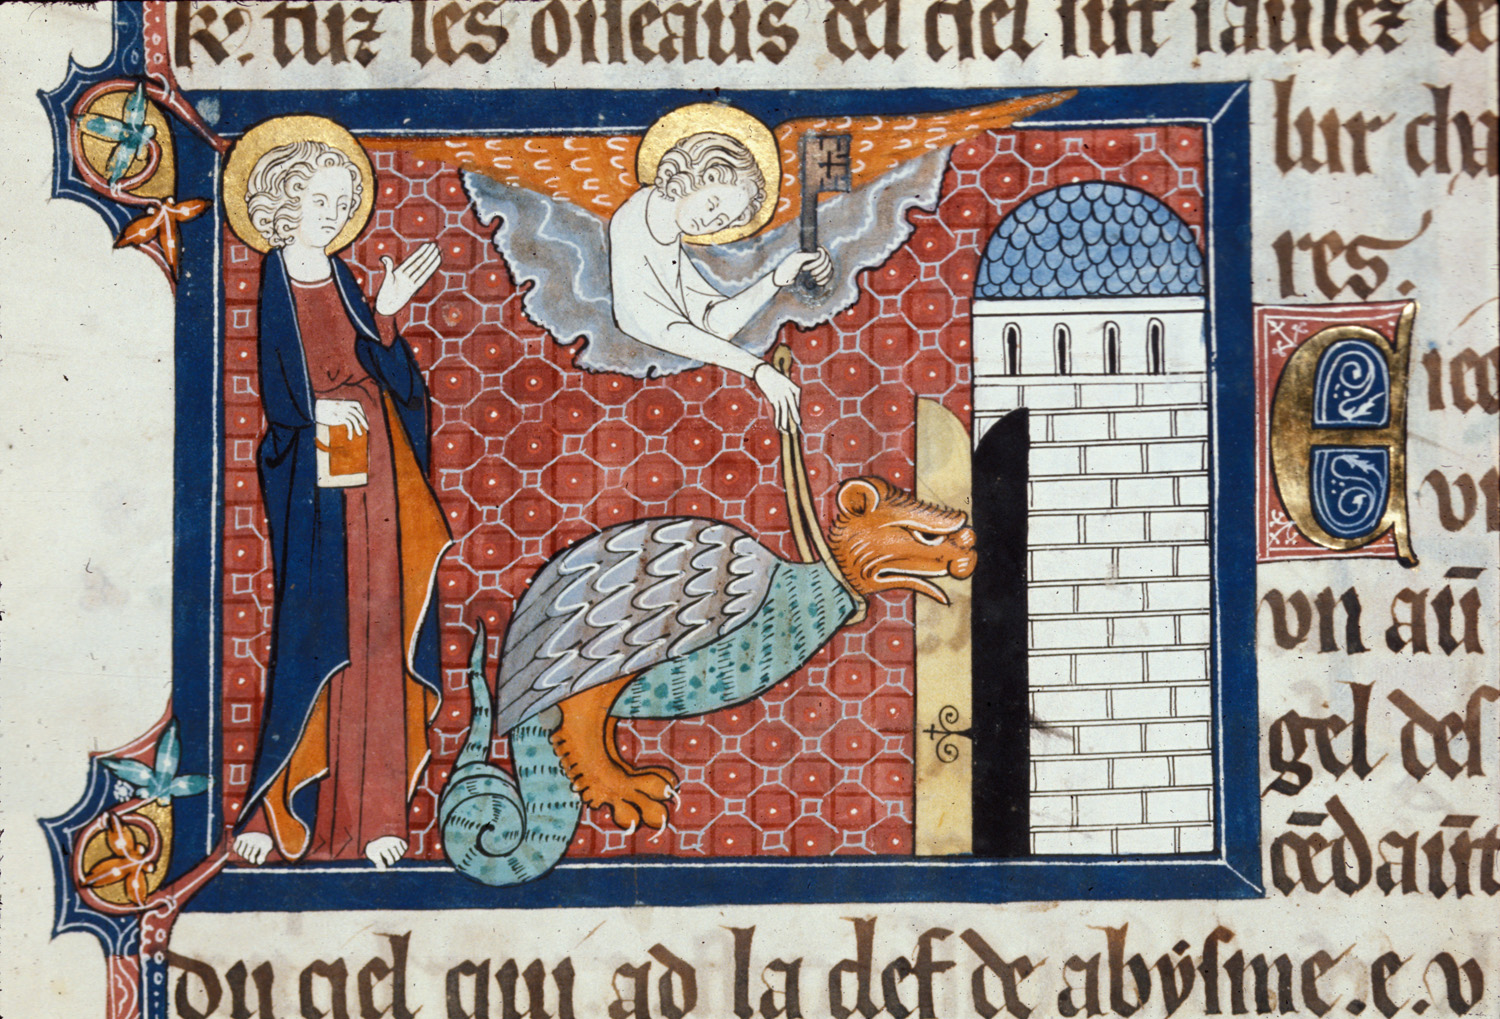 ⁊ tuz les oiseaus del ciel sūt saulez de
lur cha
res.
E ieo
vi
vn aū
gel des
cēdaūt
du ciel qui ad la clef de abysme. e. v